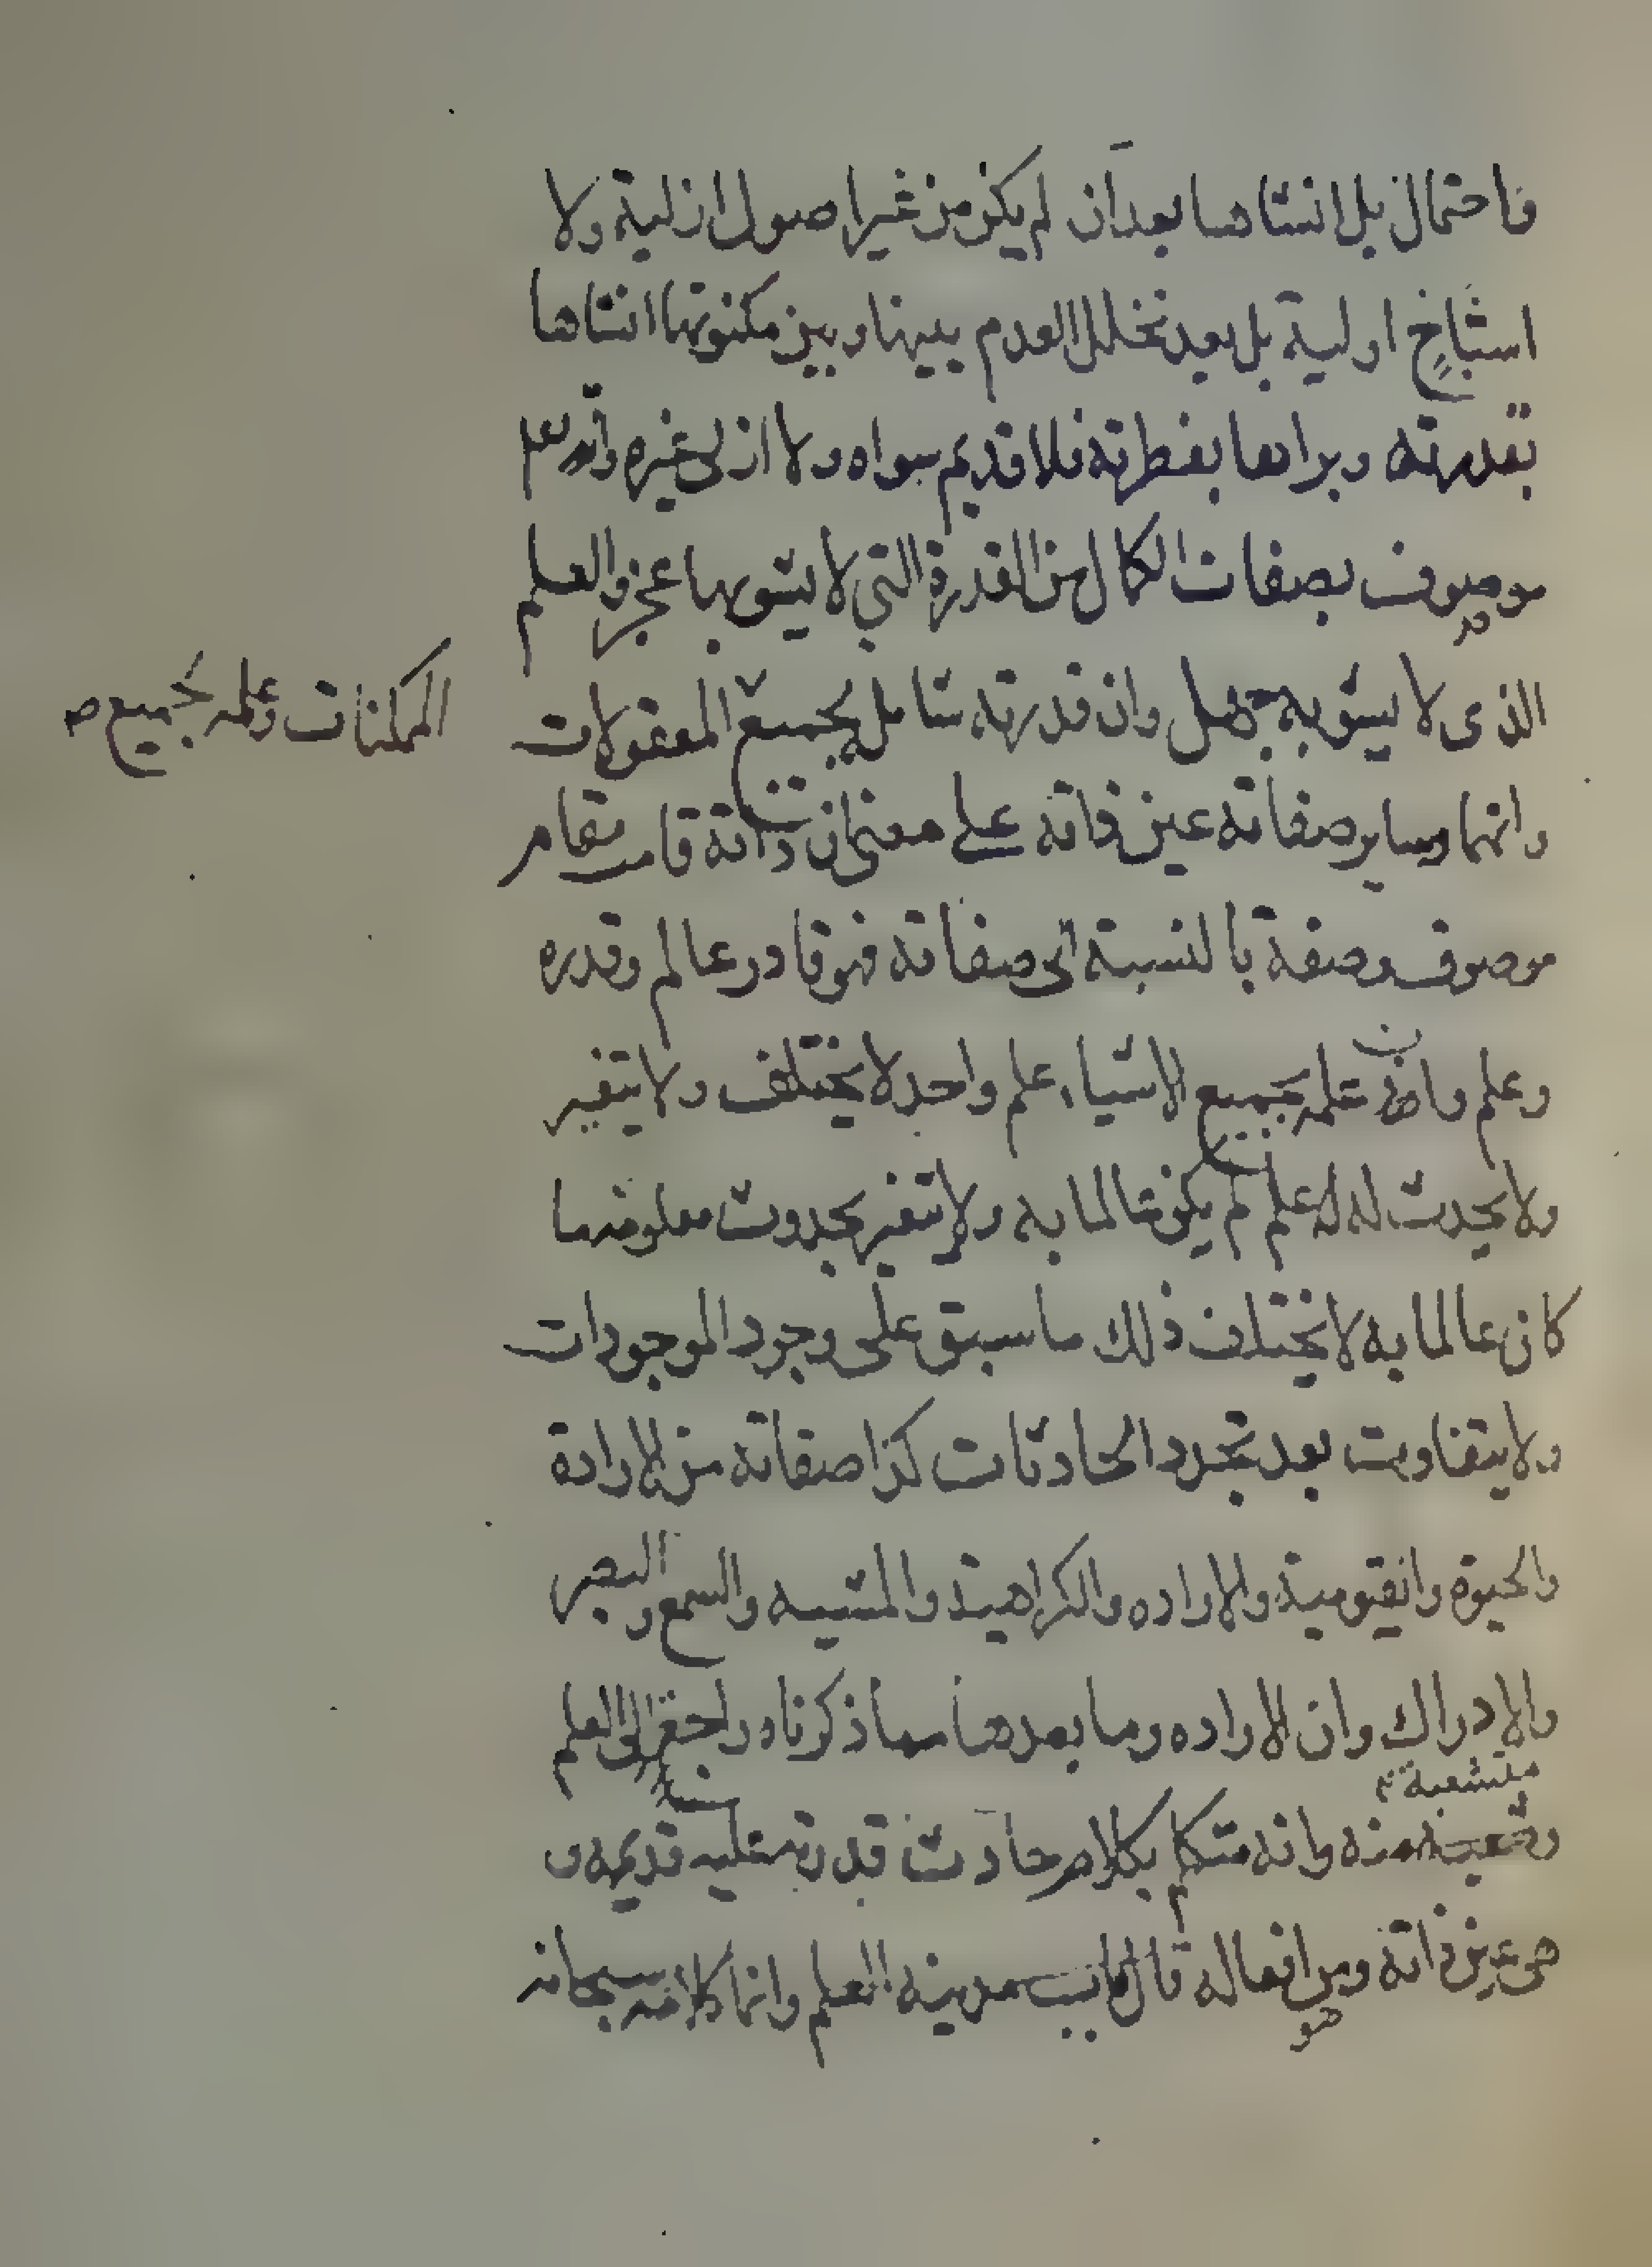 واحتمال بل انشاها بعد ان لم يكن من غير اصول ازلية ولا
اشباخ اولية بل بعد تخلل العدم بينها وبين مكنونها انشاها
بقدرته وبراها بفطرته فلا قديم سواه ولا ازلى غيره وانه
موصوف بصفات الكمال من القدرة التي لا يشوبها عجز والعلم
الذى لا يشوبه جهل وان قدرته شامل لجميع المعقولات
الممكنات وعلمه لجميع ص
وانهما وساير صفاته عين ذاته على معنى ان ذاته قامت مقام
موصوف وصفة بالنسبة الى صفاته فهو قادر عالم وقدره
وعلم وان علمه بجميع الاشياء علم واحد لا يختلف ولا يتغير
ولا يحدث له علم لم يكن عالما به ولا يتغير بحدوث معلوم ما
كان عالما به لا يختلف ذلك ما سبق على وجود الموجودات
ولا يتفاوت بعد تجرد الحادثات كذا صفاته من الارادة
والحيوة والقيومية والاراده والكراهية والمشيه والسمع والبصر
والادراك وان الاراده وما بعدها مما ذكرناه راجعة الى العلم
منتشعبة
منه وانه متكلم بكلام حادث قدرته عليه قديمه و
هى عين ذاته ومن افعاله قال باب مدينه العلم وانما كلامه سبحانه
هو